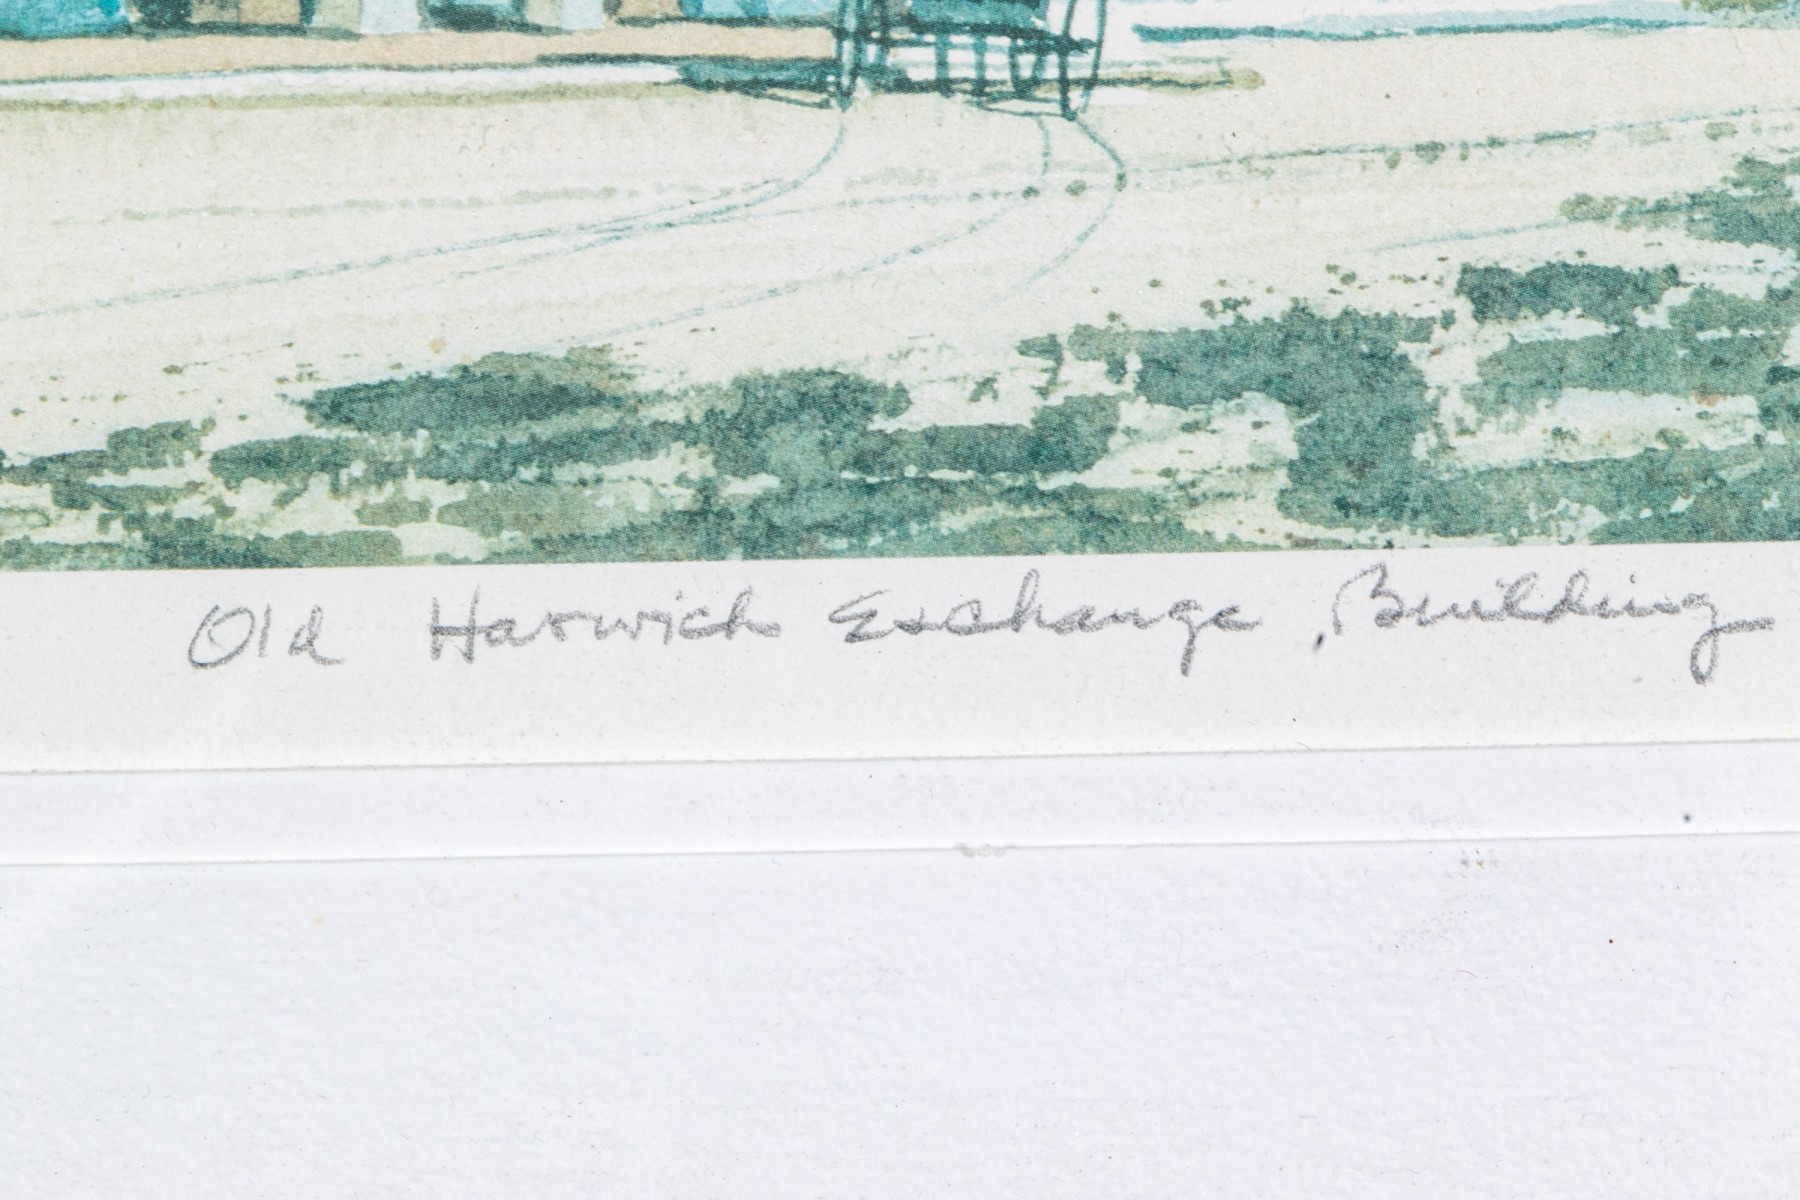 Old Harwich Exchange, Building